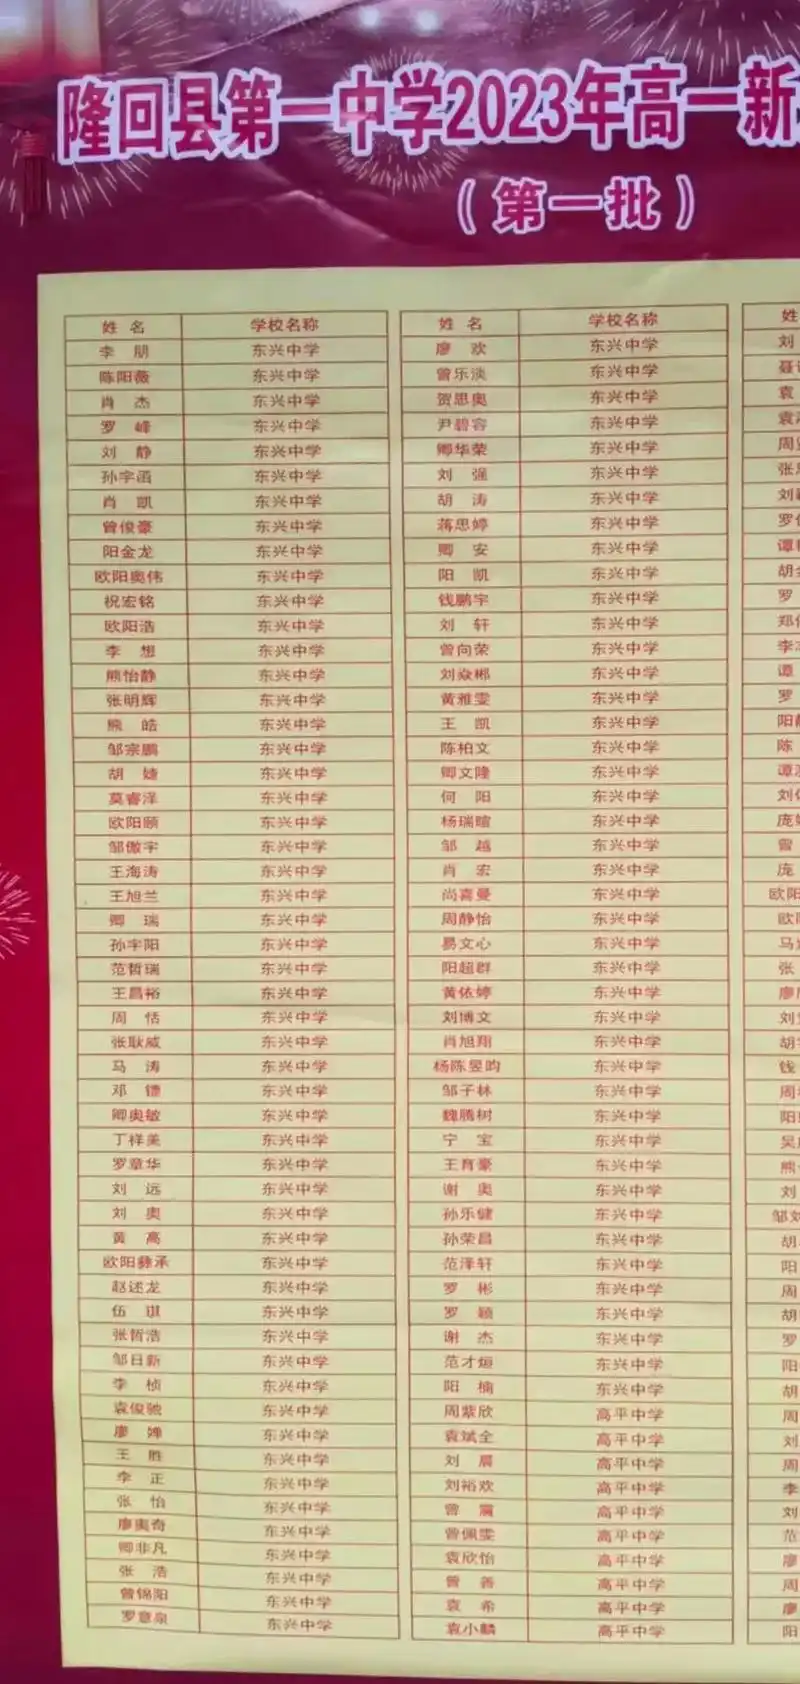 隆回县第一中学2023年高一新
（第一批）
姓 名 学校名称
李 朋 东兴中学
陈阳薇 东兴中学
肖 杰 东兴中学
罗 峰 东兴中学
刘 静 东兴中学
孙宇函 东兴中学
肖 凯 东兴中学
曾俊豪 东兴中学
阳金龙 东兴中学
欧阳奥伟 东兴中学
祝宏铭 东兴中学
欧阳浩 东兴中学
李 想 东兴中学
熊怡静 东兴中学
张明辉 东兴中学
熊 皓 东兴中学
邹宗鹏 东兴中学
胡 婕 东兴中学
莫睿泽 东兴中学
欧阳颐 东兴中学
邹傲宇 东兴中学
王海涛 东兴中学
王旭兰 东兴中学
卿 瑞 东兴中学
孙宇阳 东兴中学
范哲瑞 东兴中学
王昌裕 东兴中学
周 恬 东兴中学
张耿威 东兴中学
马 涛 东兴中学
邓 镖 东兴中学
卿奥敏 东兴中学
丁祥美 东兴中学
罗章华 东兴中学
刘 远 东兴中学
刘 奥 东兴中学
黄 高 东兴中学
欧阳彝承 东兴中学
赵述龙 东兴中学
伍 琪 东兴中学
张哲浩 东兴中学
邹日新 东兴中学
李 桢 东兴中学
袁俊驰 东兴中学
廖 婵 东兴中学
王 胜 东兴中学
李 正 东兴中学
张 怡 东兴中学
廖奥奇 东兴中学
卿非凡 东兴中学
张 浩 东兴中学
曾锦阳 东兴中学
罗意泉 东兴中学
姓 名 学校名称
廖 欢 东兴中学
曾乐淡 东兴中学
贺思奥 东兴中学
尹碧容 东兴中学
卿华荣 东兴中学
刘 强 东兴中学
胡 涛 东兴中学
蒋思婷 东兴中学
卿 安 东兴中学
阳 凯 东兴中学
钱鹏宇 东兴中学
刘 轩 东兴中学
曾向荣 东兴中学
刘焱郴 东兴中学
黄雅雯 东兴中学
王 凯 东兴中学
陈柏文 东兴中学
卿文隆 东兴中学
何 阳 东兴中学
杨瑞暄 东兴中学
邹 越 东兴中学
肖 宏 东兴中学
尚喜曼 东兴中学
周静怡 东兴中学
易文心 东兴中学
阳超群 东兴中学
黄依婷 东兴中学
刘博文 东兴中学
肖旭翔 东兴中学
杨陈昱昀 东兴中学
邹子林 东兴中学
魏腾树 东兴中学
宁 宝 东兴中学
王育豪 东兴中学
谢 奥 东兴中学
孙乐健 东兴中学
孙荣昌 东兴中学
范泽轩 东兴中学
罗 彬 东兴中学
罗 颖 东兴中学
谢 杰 东兴中学
范才烜 东兴中学
阳 楠 东兴中学
周紫欣 高平中学
袁斌全 高平中学
刘 晨 高平中学
刘裕欢 高平中学
曾 高平中学
曾佩雯 高平中学
袁欣怡 高平中学
曾 善 高平中学
袁 希 高平中学
袁小麟 高平中学
姓
刘
聂
袁
袁
周
张
刘
罗
谭
胡
罗
郑
李
谭
罗
阳
陈
谭
刘
庞
曾
庞
欧阳
欧
马
张
廖
刘
胡
钱
周
阳
吴
熊
刘
邹刘
胡
阳
周
胡
罗
阳
胡
周
刘
周
李
刘
范
廖
周
廖
阳